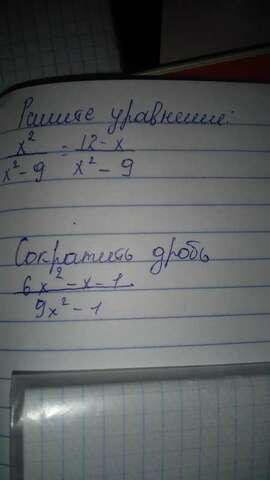 Решите уравнение:
x²/(x² - 9) = (12 - x)/(x² - 9)
Сократить дробь
(6x² - x - 1)/(9x² - 1)